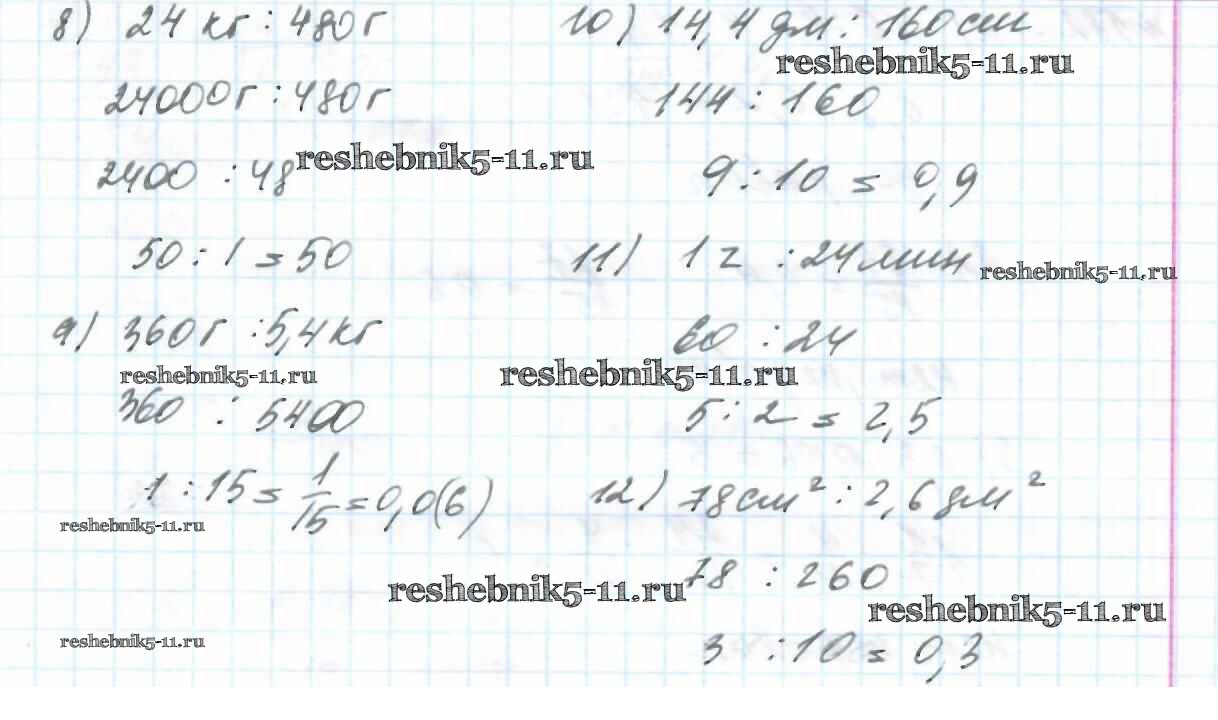 8) 24 кг : 480 г
24000 г : 480 г
2400 : 48
reshebnik5-11.ru
50 : 1 = 50
9) 360 г : 5,4 кг
reshebnik5-11.ru
360 : 5400
1 : 15 = 1/15 = 0,0(6)
reshebnik5-11.ru
reshebnik5-11.ru
10) 14,4 дм : 160 см
reshebnik5-11.ru
144 : 160
9 : 10 = 0,9
11) 1 ч : 24 мин
reshebnik5-11.ru
60 : 24
reshebnik5-11.ru
5 : 2 = 2,5
12) 78 см² : 2,6 дм²
78 : 260
reshebnik5-11.ru
reshebnik5-11.ru
3 : 10 = 0,3